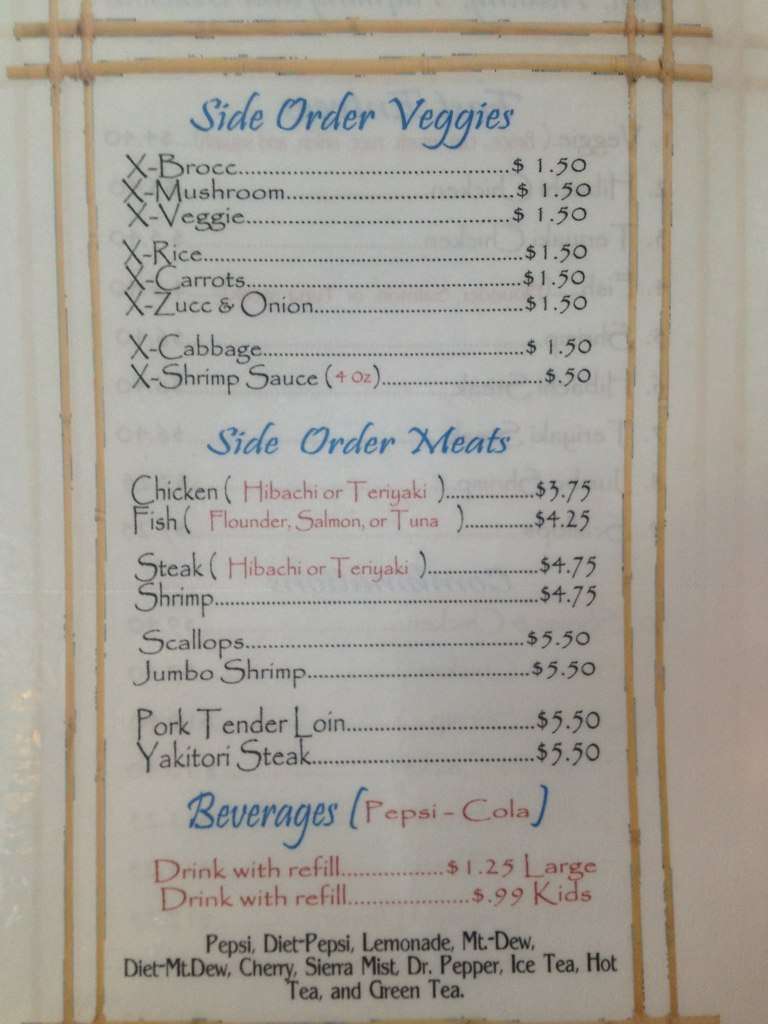 Side Order Veggies
X-Brocc.......................................$ 1.50
X-Mushroom....................................$ 1.50
X-Veggie.......................................$ 1.50
X-Rice...................................................$1.50
X-Carrots............................................$1.50
X-Zucc & Onion..................................$1.50
X-Cabbage..........................................$ 1.50
X-Shrimp Sauce (4 oz).........................$.50
Side Order Meats
Chicken ( Hibachi or Teriyaki )..............$3.75
Fish ( Flounder, Salmon, or Tuna )............$4.25
Steak ( Hibachi or Teriyaki )..................$4.75
Shrimp....................................................$4.75
Scallops.............................................$5.50
Jumbo Shrimp....................................$5.50
Pork Tender Loin..............................$5.50
Yakitori Steak...................................$5.50
Beverages (Pepsi - Cola)
Drink with refill.................$1.25 Large
Drink with refill....................$.99 Kids
Pepsi, Diet-Pepsi, Lemonade, Mt.-Dew,
Diet-Mt.Dew, Cherry, Sierra Mist, Dr. Pepper, Ice Tea, Hot
Tea, and Green Tea.